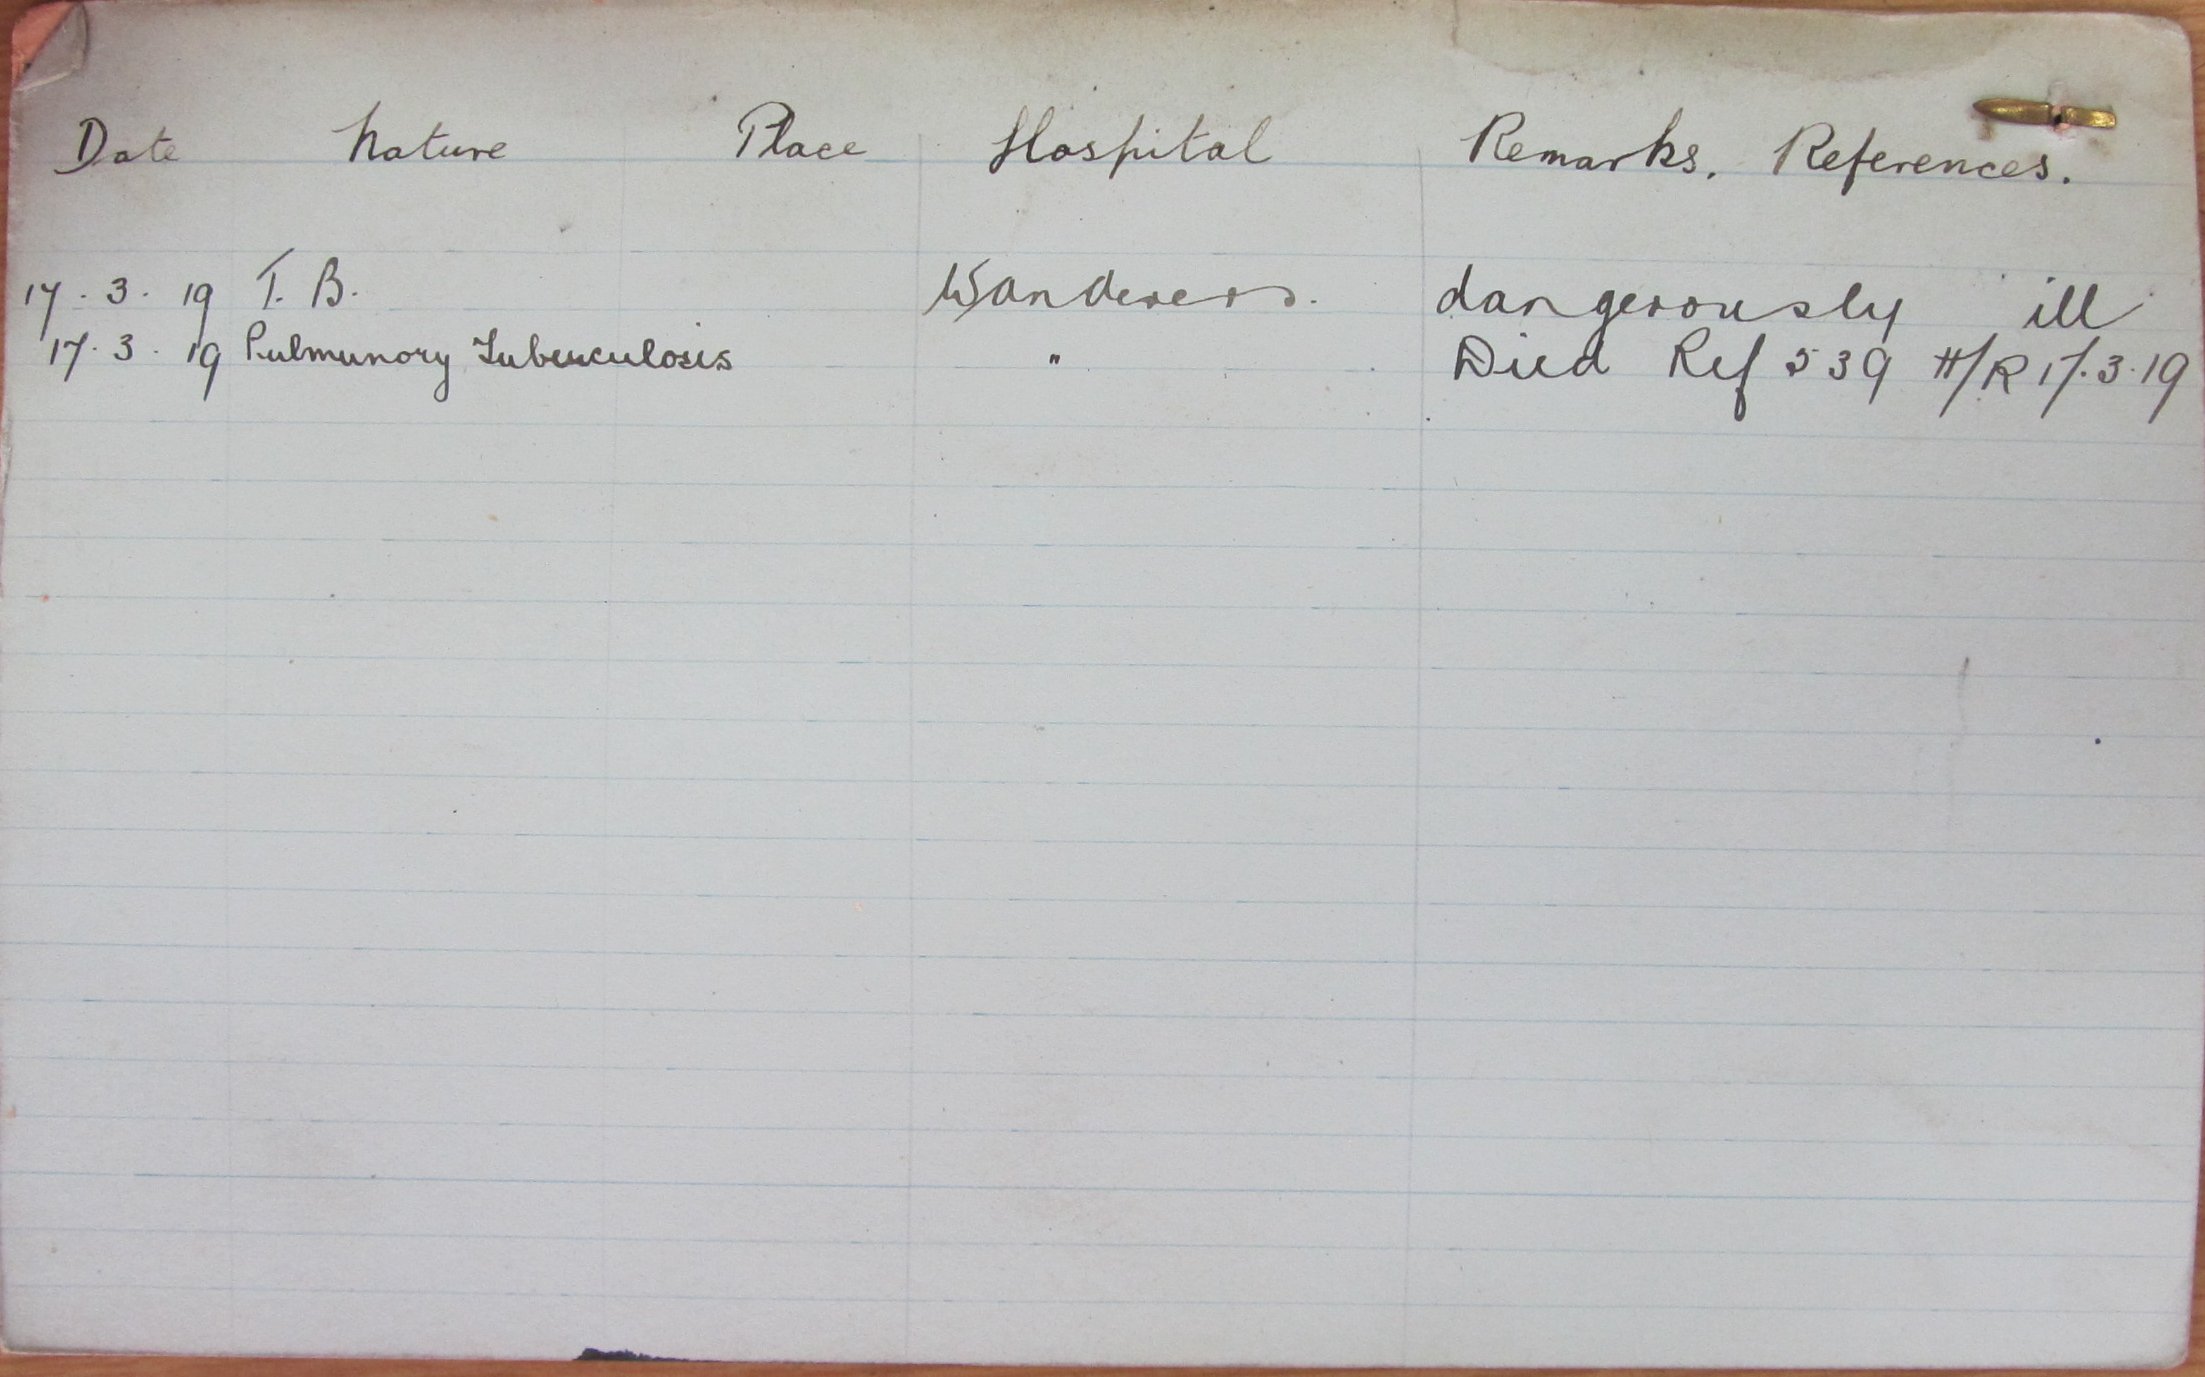 Date Nature Place Hospital Remarks. References.
17.3.19 T.B. Wanderers. dangerously ill
17.3.19 Pulmunory Tuberculosis " Died Ref 539 H/R 17.3.19